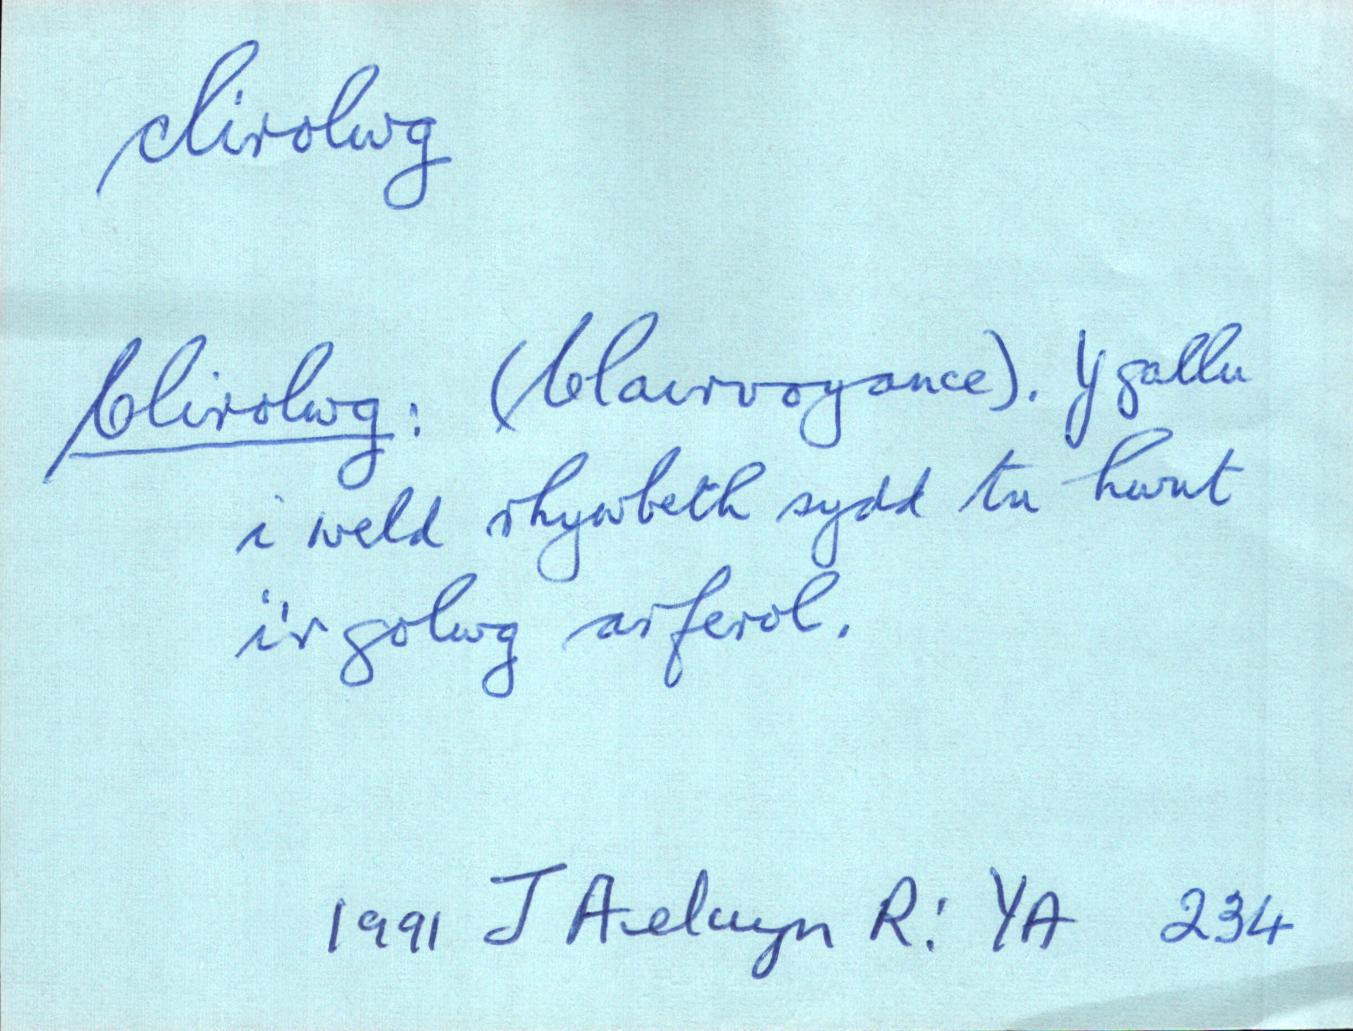 clirolwg
Clirolwg: (Clairvoyance). Y gallu
i weld rhywbeth sydd tu hwnt
i'r golwg arferol.
1991 J Aelwyn R: YA 234